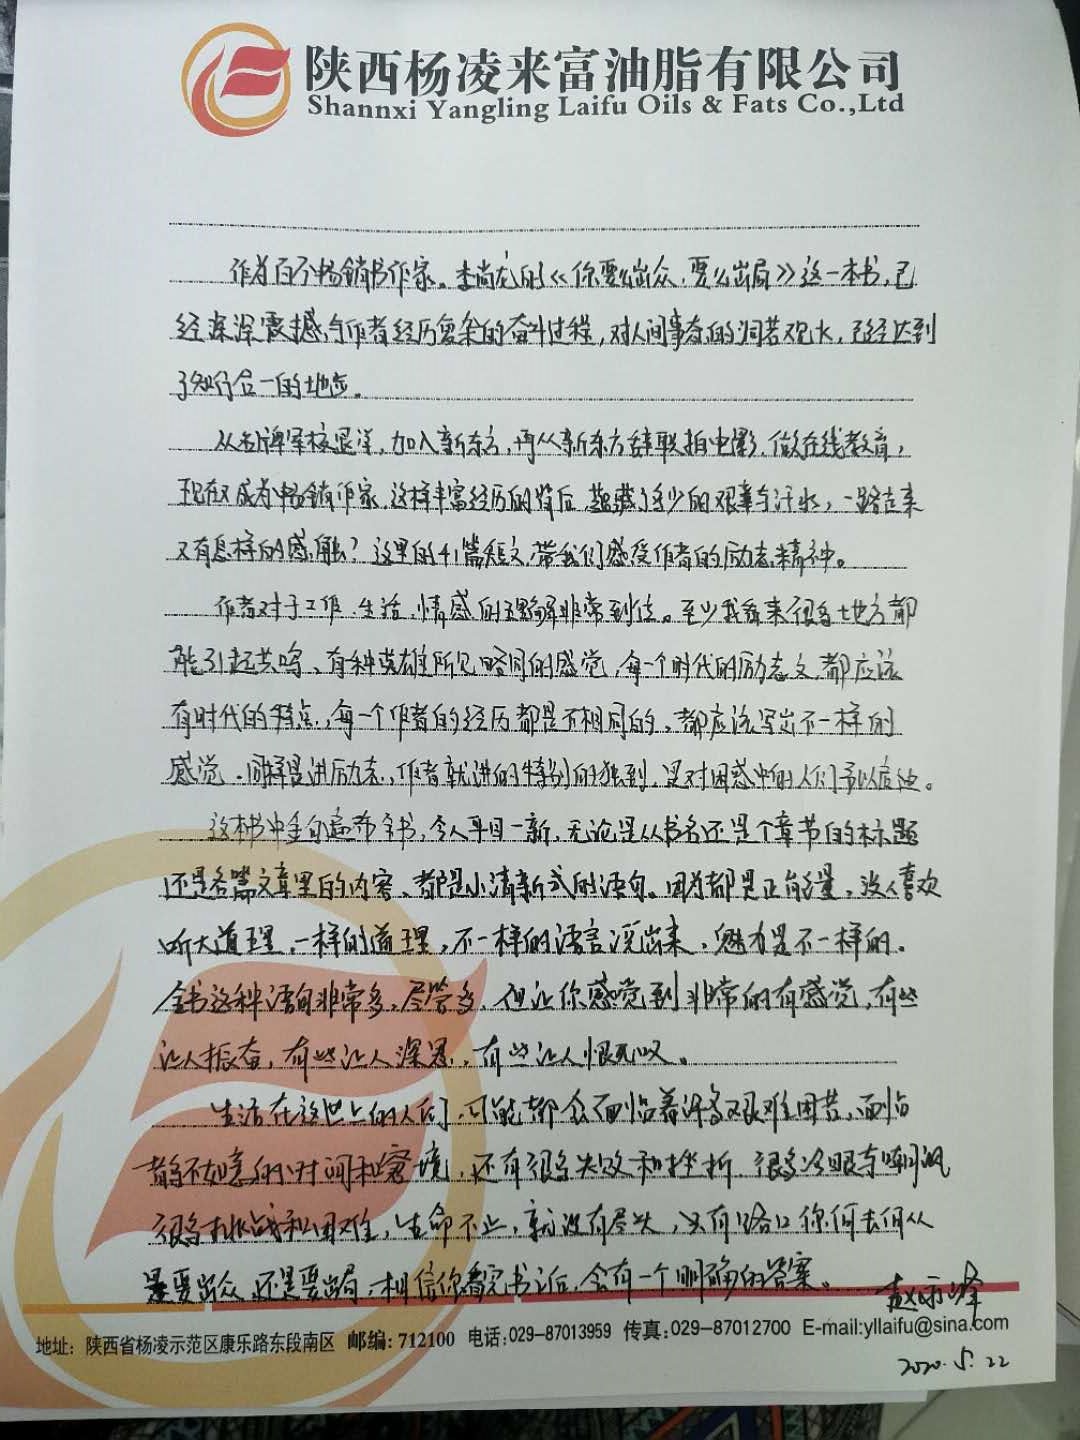 陕西杨凌来富油脂有限公司
Shannxi Yangling Laifu Oils & Fats Co.,Ltd
作为百万畅销书作家。李尚龙的《你要么出众，要么出局》这一本书，已
经深深震撼，与作者经历复杂的奋斗过程，对人间事态的洞若观火，已经达到
了知行合一的地步。
从名牌军校退学，加入新东方，再从新东方辞职拍电影.做在线教育，
现在又成为畅销作家.这样丰富经历的背后,蕴藏了多少的艰辛与汗水，一路走来
又有怎样的感触？这里的41篇短文,带我们感受作者的励志精神。
作者对于工作.生活.情感的理解非常到位。至少我看来很多地方都
能引起共鸣、有种英雄所见略同的感觉，每一个时代的励志文,都应该
有时代的特点，每一个作者的经历都是不相同的，都应该写出不一样的
感觉.同样是讲励志，作者就讲的特别的独到，是对困惑中的人们予以启迪。
这本书中金句遍布全书，令人耳目一新，无论是从书名还是个章节的标题
还是各篇文章里的内容、都是小清新式的语句。因为都是正能量，没人喜欢
听大道理，一样的道理，不一样的语言说出来，魅力是不一样的。
全书这种语句非常多，尽管多，但让你感觉到非常的有感觉，有些
让人振奋，有些让人深思，有些让人恨无叹。
生活在这世上的人们，可能都会面临着许多艰难困苦、面临
着多不如意的时间和窘境，还有很多失败和挫折，很多冷眼与嘲讽
很多挑战和困难，生命不止，就没有尽头，只有路口你何去何从
是要出众,还是要出局，相信你看完书之后，会有一个明确的答案。
赵
地址：陕西省杨凌示范区康乐路东段南区 邮编: 712100 电话:029-87013959 传真:029-87012700 E-mail:yllaifu@sina.com
2020.5.22